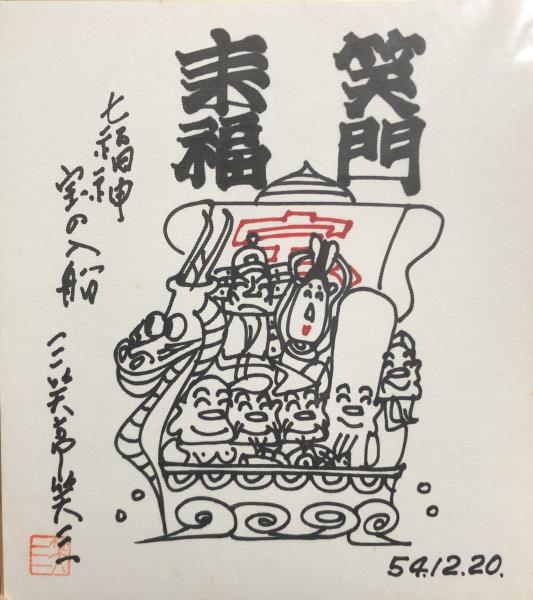 笑門
来福
七福神
宝の入船
三笑亭笑三
宝
54.12.20.